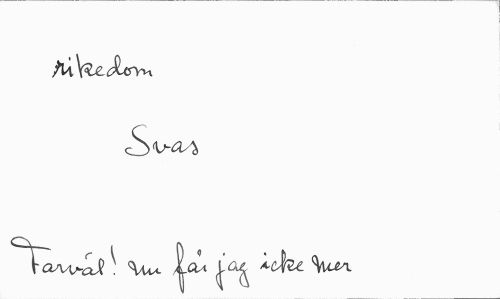 rikedom
Svas
Farväl! nu får jag icke mer